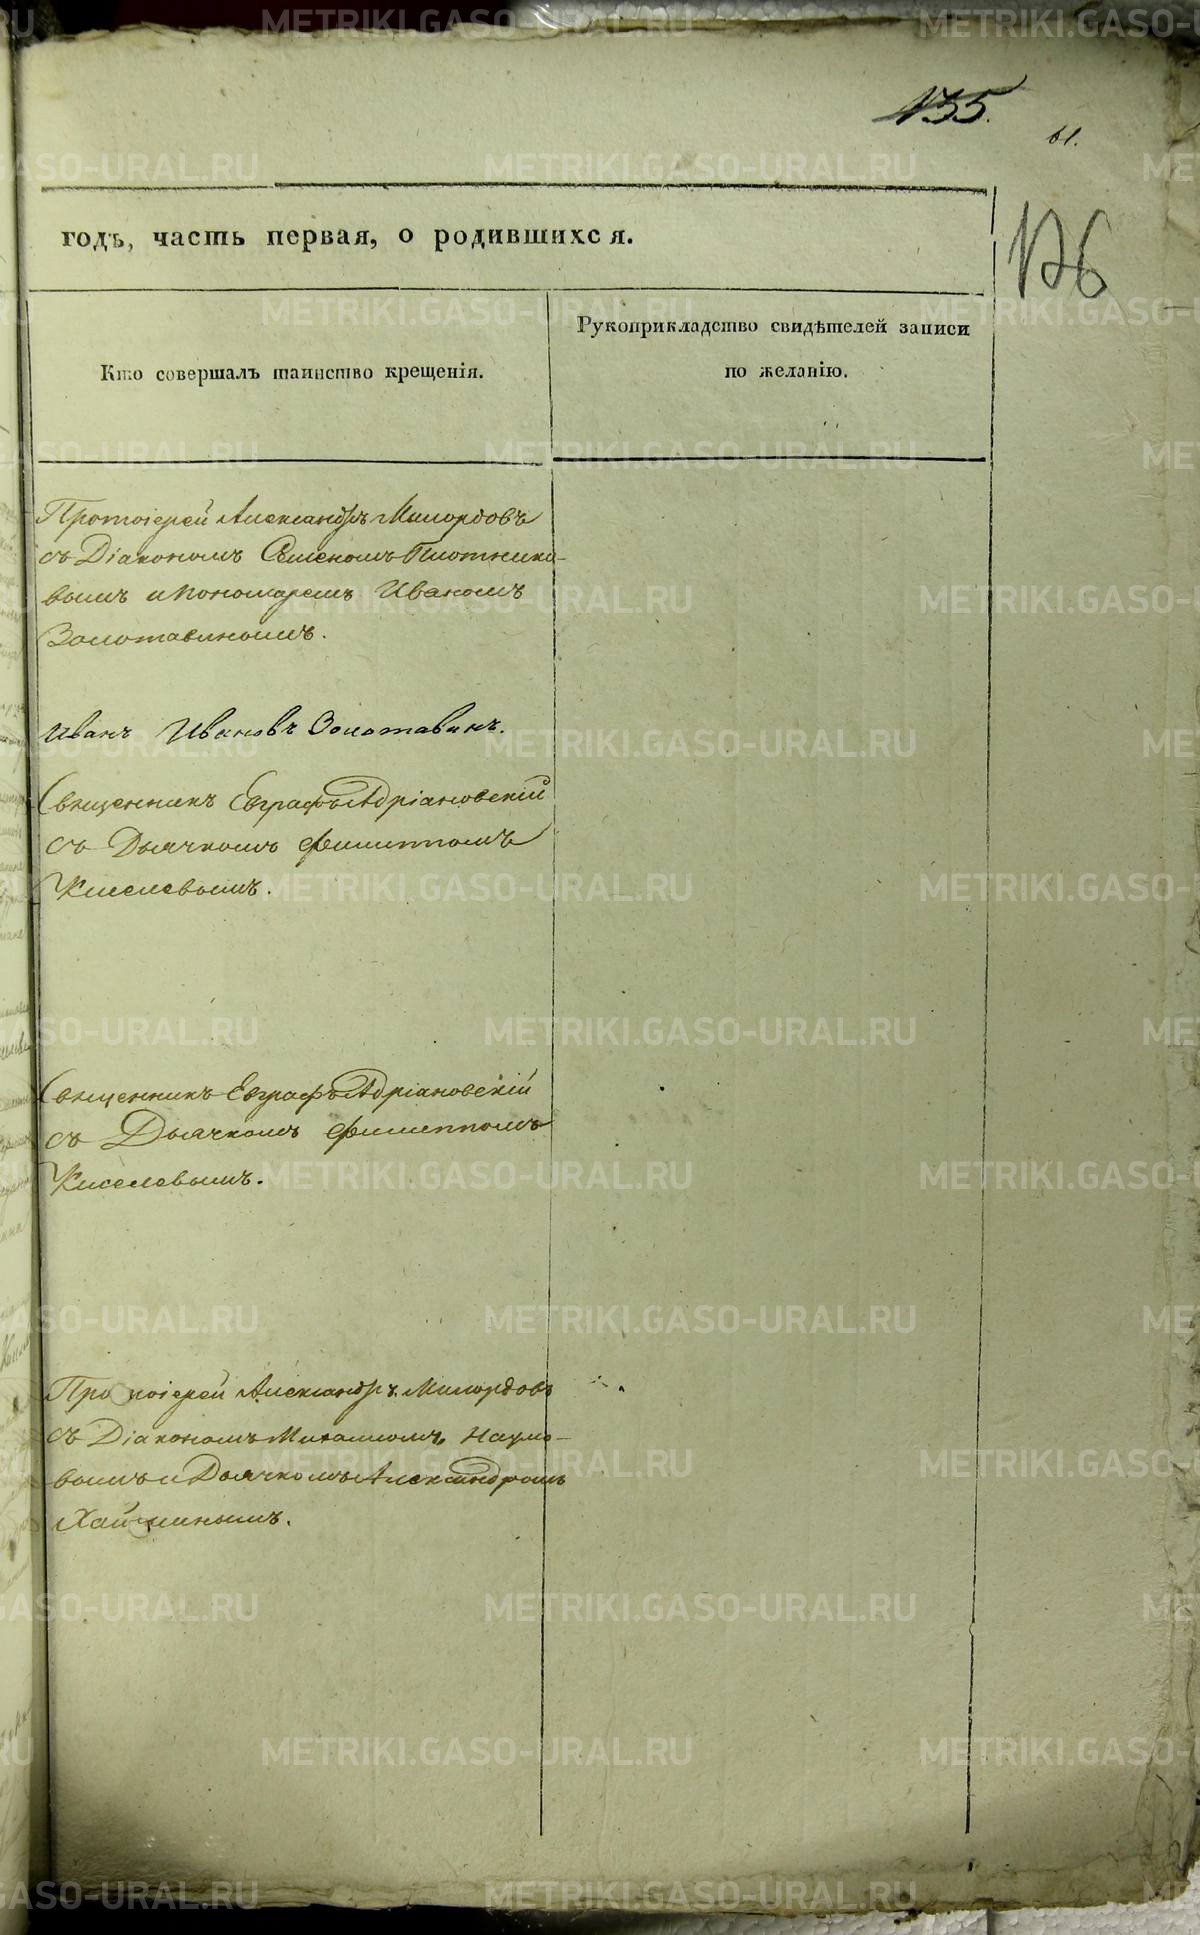 135.
61.
126
годъ, часть первая, о родившихся.
Кто совершалъ таинство крещенія.
Рукоприкладство свидѣтелей записи
по желанію.
Протоіерей Александръ Милордовъ
съ Діакономъ Семеномъ Плотнико-
вымъ и пономаремъ Иваномъ
Золотавинымъ.
Иванъ Ивановъ Золотавинъ.
Священникъ Евграфъ Адріановскій
съ Дьячкомъ Филиппомъ
Киселевымъ.
Священникъ Евграфъ Адріановскій
съ Дьячкомъ Филиппомъ
Киселевымъ.
Протоіерей Александръ Милордовъ
съ Діакономъ Михаиломъ Наумо-
вымъ и Дьячкомъ Александромъ
METRIKI.GASO-URAL.RU